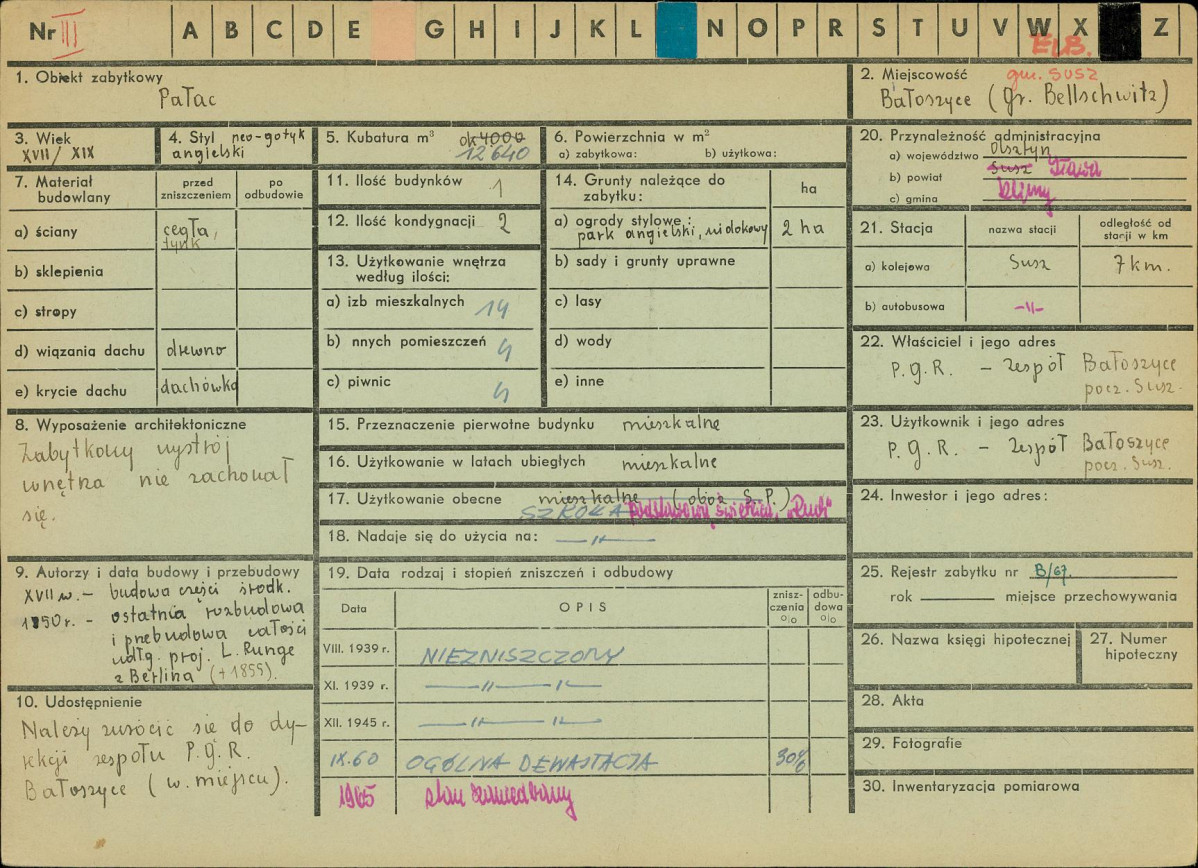 Nr III
A B C D E G H I J K L N O P R S T U V W X Z
ELB.
1. Obiekt zabytkowy
Pałac
2. Miejscowość
gm. SUSZ
Bałoszyce (gr. Bellschwitz)
3. Wiek
XVII/XIX
4. Styl neo-gotyk
angielski
5. Kubatura m³ ok 4000
12 640
6. Powierzchnia w m²
a) zabytkowa: b) użytkowa:
7. Materiał budowlany
przed zniszczeniem
po odbudowie
a) ściany cegła,
tynk
b) sklepienia
c) stropy
d) wiązania dachu drewno
e) krycie dachu dachówka
8. Wyposażenie architektoniczne
Zabytkowy wystrój
wnętrza nie zachował
się.
9. Autorzy i data budowy i przebudowy
XVII w. - budowa części środk.
1850 r. - ostatnia rozbudowa
i przebudowa całości
wdłg. proj. L. Runge
z Berlina (+1855).
10. Udostępnienie
Należy zwrócić się do dy-
rekcji zespołu P.G.R.
Bałoszyce (w. miejscu).
11. Ilość budynków 1
12. Ilość kondygnacji 2
13. Użytkowanie wnętrza
według ilości:
a) izb mieszkalnych 14
b) nnych pomieszczeń 4
c) piwnic 4
14. Grunty należące do
zabytku:
ha
a) ogrody stylowe:
park angielski, widokowy 2 ha
b) sady i grunty uprawne
c) lasy
d) wody
e) inne
15. Przeznaczenie pierwotne budynku mieszkalne
16. Użytkowanie w latach ubiegłych mieszkalne
17. Użytkowanie obecne mieszkalne (obóz S.P.)
SZKOŁA podstawowa, świetlica, "Ruch"
18. Nadaje się do użycia na: —„—
19. Data rodzaj i stopień zniszczeń i odbudowy
Data
OPIS
znisz-
czenia
%
odbu-
dowa
%
VIII. 1939 r. NIEZNISZCZONY
XI. 1939 r. —„— —„—
XII. 1945 r. —„— —„—
IX.60 OGÓLNA DEWASTACJA 30%
1965 stan zaniedbany
20. Przynależność administracyjna
a) województwo Olsztyn
b) powiat Susz Iława
c) gmina
21. Stacja
nazwa stacji
odległość od
stacji w km
a) kolejowa Susz 7 km.
b) autobusowa -„-
22. Właściciel i jego adres
P.G.R. - zespół Bałoszyce
pocz. Susz.
23. Użytkownik i jego adres
P.G.R. - zespół Bałoszyce
pocz. Susz.
24. Inwestor i jego adres:
25. Rejestr zabytku nr B/67.
rok miejsce przechowywania
26. Nazwa księgi hipotecznej
27. Numer
hipoteczny
28. Akta
29. Fotografie
30. Inwentaryzacja pomiarowa